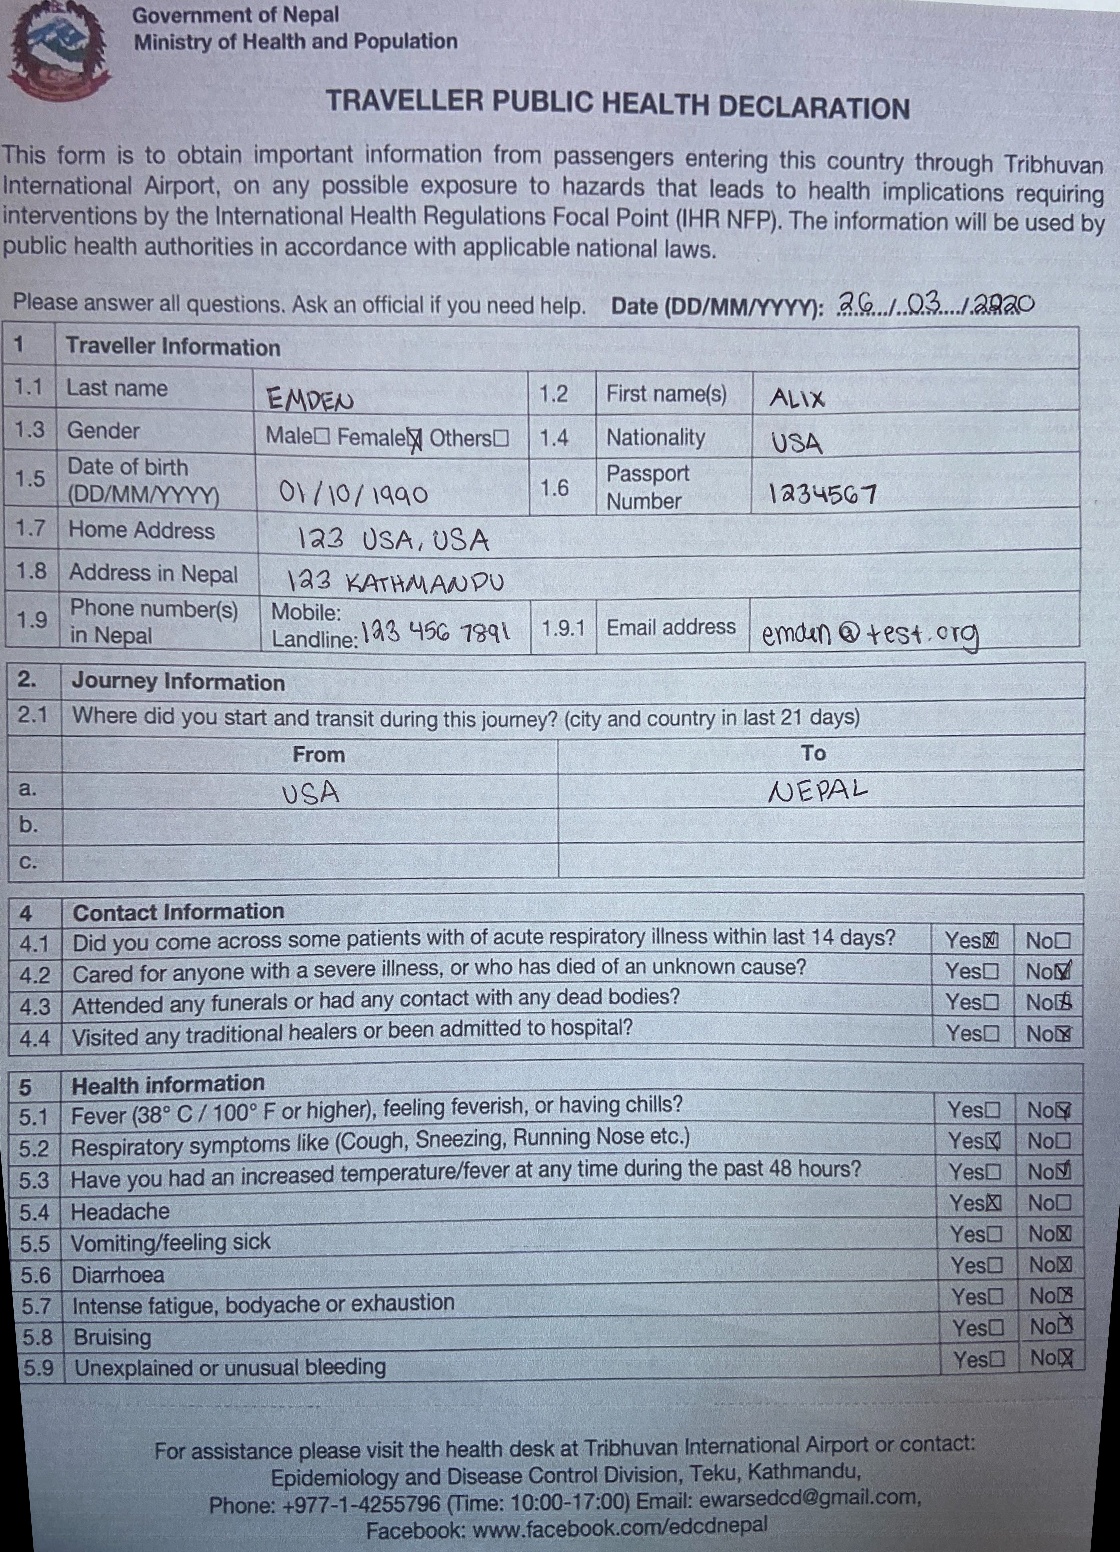 Government of Nepal
Ministry of Health and Population
TRAVELLER PUBLIC HEALTH DECLARATION
This form is to obtain important information from passengers entering this country through Tribhuvan
International Airport, on any possible exposure to hazards that leads to health implications requiring
interventions by the International Health Regulations Focal Point (IHR NFP). The information will be used by
public health authorities in accordance with applicable national laws.
Please answer all questions. Ask an official if you need help. Date (DD/MM/YYYY): 26/03/2020
1 Traveller Information
1.1 Last name EMDEN 1.2 First name(s) ALIX
1.3 Gender Male☐ Female☒ Others☐ 1.4 Nationality USA
1.5 Date of birth (DD/MM/YYYY) 01/10/1990 1.6 Passport Number 1234567
1.7 Home Address 123 USA, USA
1.8 Address in Nepal 123 KATHMANDU
1.9 Phone number(s) in Nepal Mobile: Landline: 123 456 7891 1.9.1 Email address emden@test.org
2. Journey Information
2.1 Where did you start and transit during this journey? (city and country in last 21 days)
From To
a. USA NEPAL
b.
c.
4 Contact Information
4.1 Did you come across some patients with of acute respiratory illness within last 14 days? Yes☒ No☐
4.2 Cared for anyone with a severe illness, or who has died of an unknown cause? Yes☐ No☒
4.3 Attended any funerals or had any contact with any dead bodies? Yes☐ No☒
4.4 Visited any traditional healers or been admitted to hospital? Yes☐ No☒
5 Health information
5.1 Fever (38° C / 100° F or higher), feeling feverish, or having chills? Yes☐ No☒
5.2 Respiratory symptoms like (Cough, Sneezing, Running Nose etc.) Yes☒ No☐
5.3 Have you had an increased temperature/fever at any time during the past 48 hours? Yes☐ No☒
5.4 Headache Yes☒ No☐
5.5 Vomiting/feeling sick Yes☐ No☒
5.6 Diarrhoea Yes☐ No☒
5.7 Intense fatigue, bodyache or exhaustion Yes☐ No☒
5.8 Bruising Yes☐ No☒
5.9 Unexplained or unusual bleeding Yes☐ No☒
For assistance please visit the health desk at Tribhuvan International Airport or contact:
Epidemiology and Disease Control Division, Teku, Kathmandu,
Phone: +977-1-4255796 (Time: 10:00-17:00) Email: ewarsedcd@gmail.com,
Facebook: www.facebook.com/edcdnepal